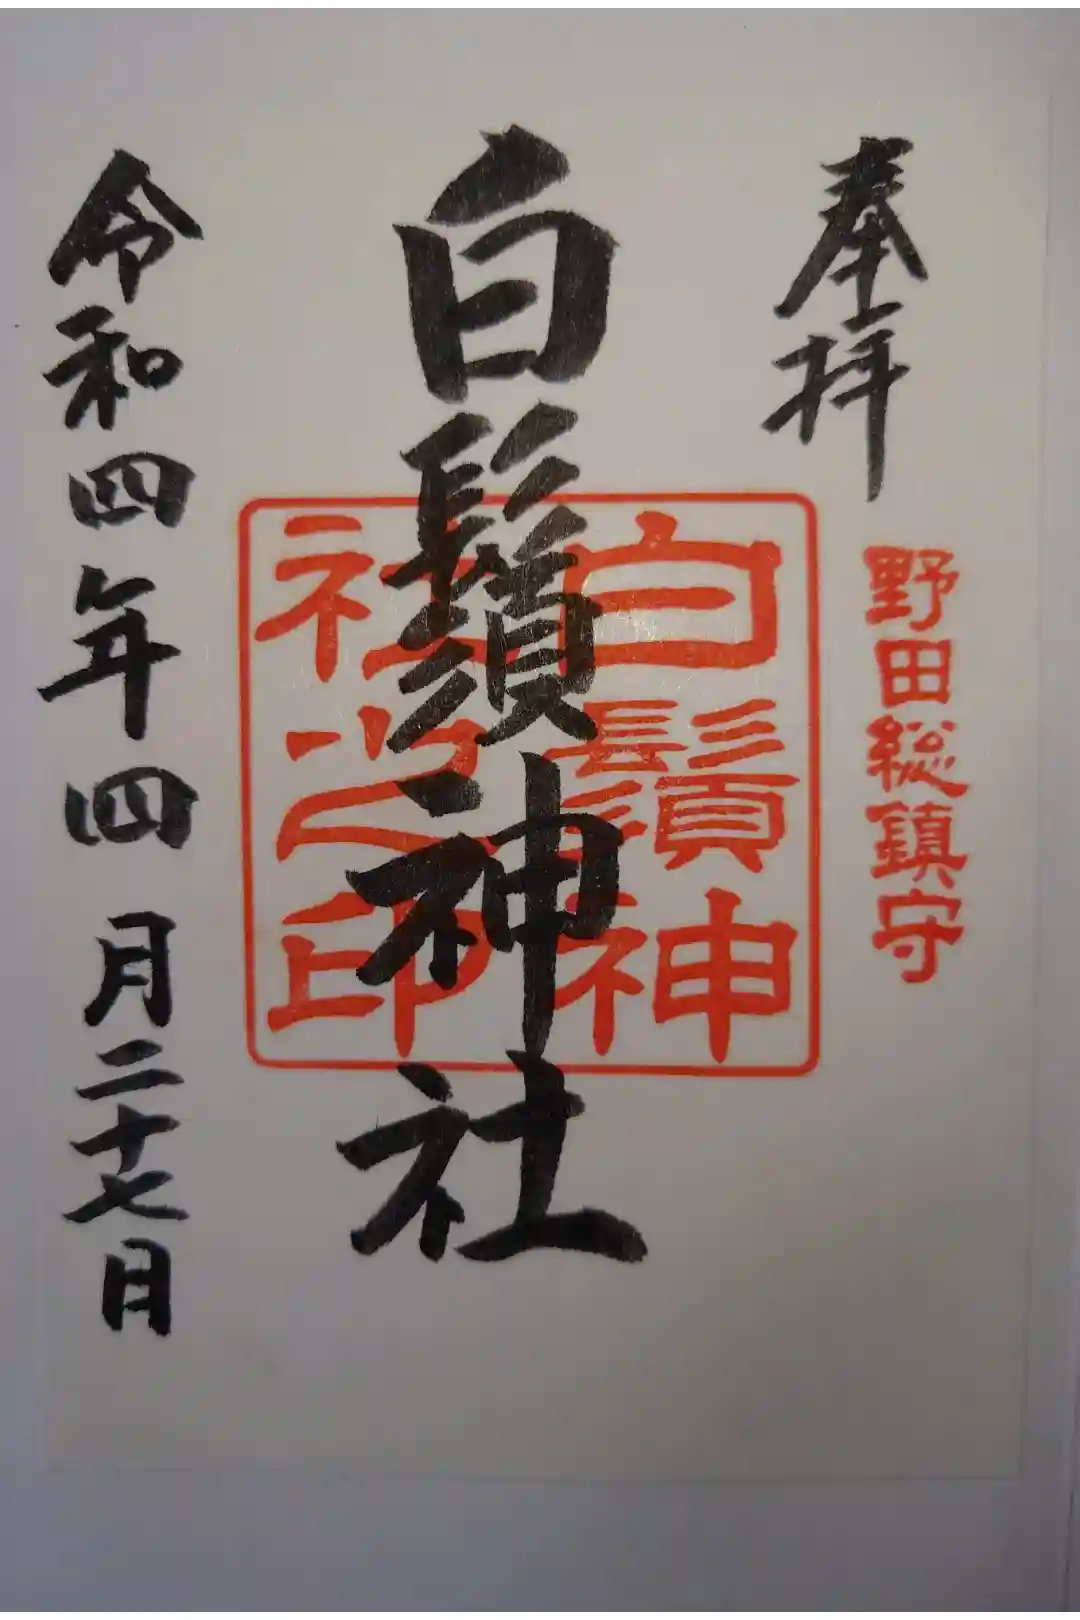 奉拝
野田総鎮守
白鬚神社
白鬚神
社之印
令和四年四月二十七日